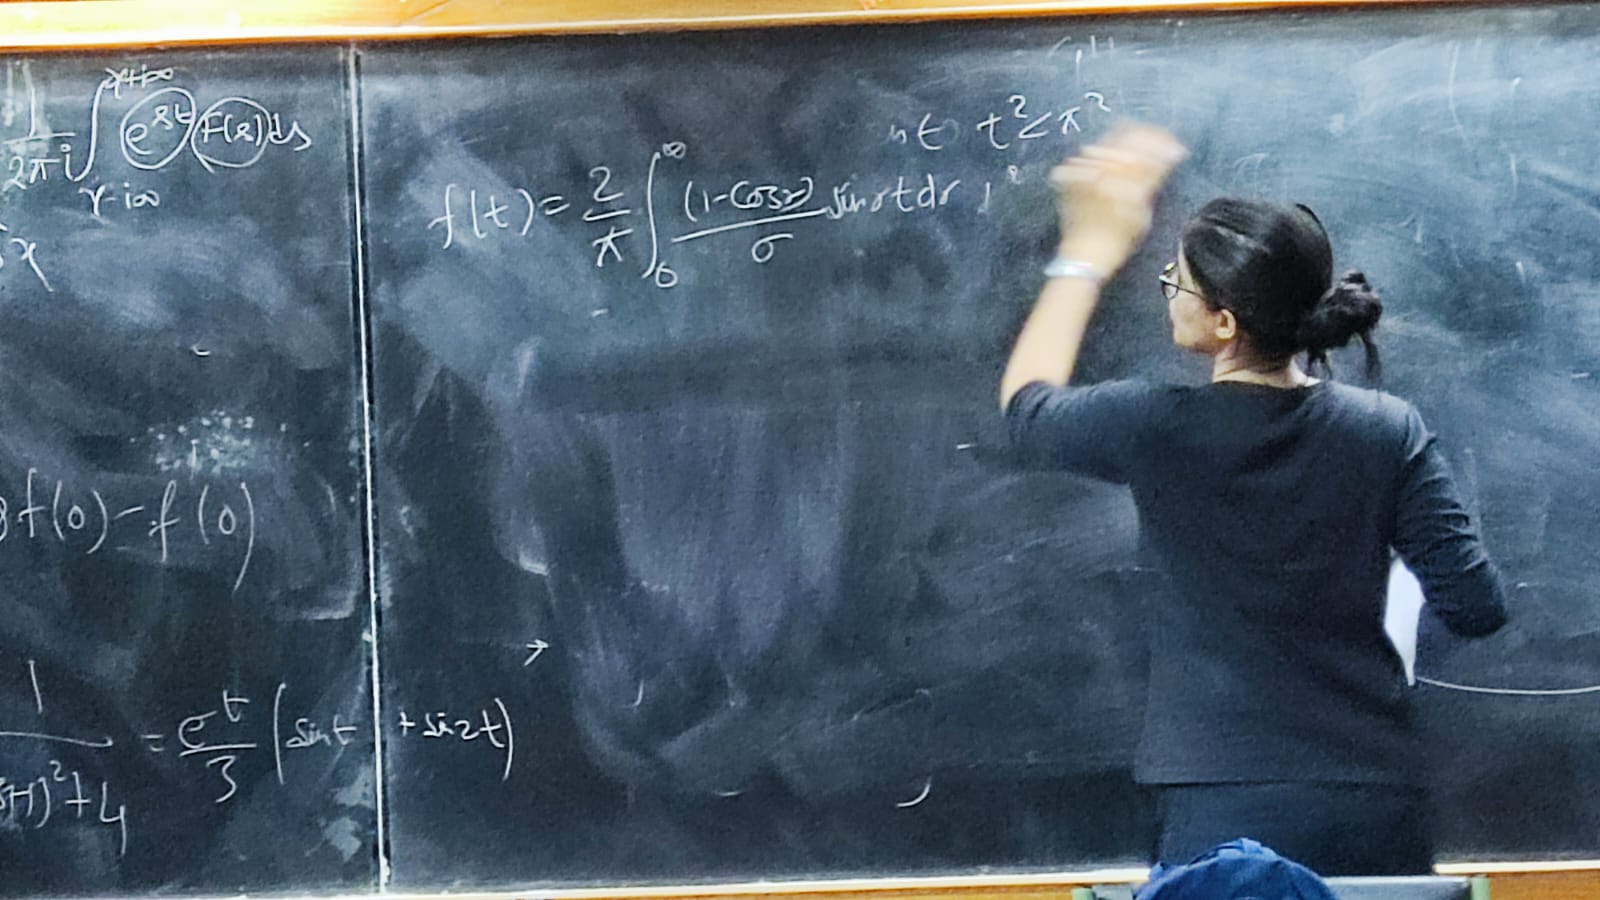 1/2πi ∫_{γ-i∞}^{γ+i∞} e^{st} F(s) ds
x
f(0) - f(0)
1/(s+1)²+4 = e^t/3 (sint + sin2t)
t² < π²
f(t) = 2/π ∫_0^∞ (1-cosσ)/σ sinσt dσ
→